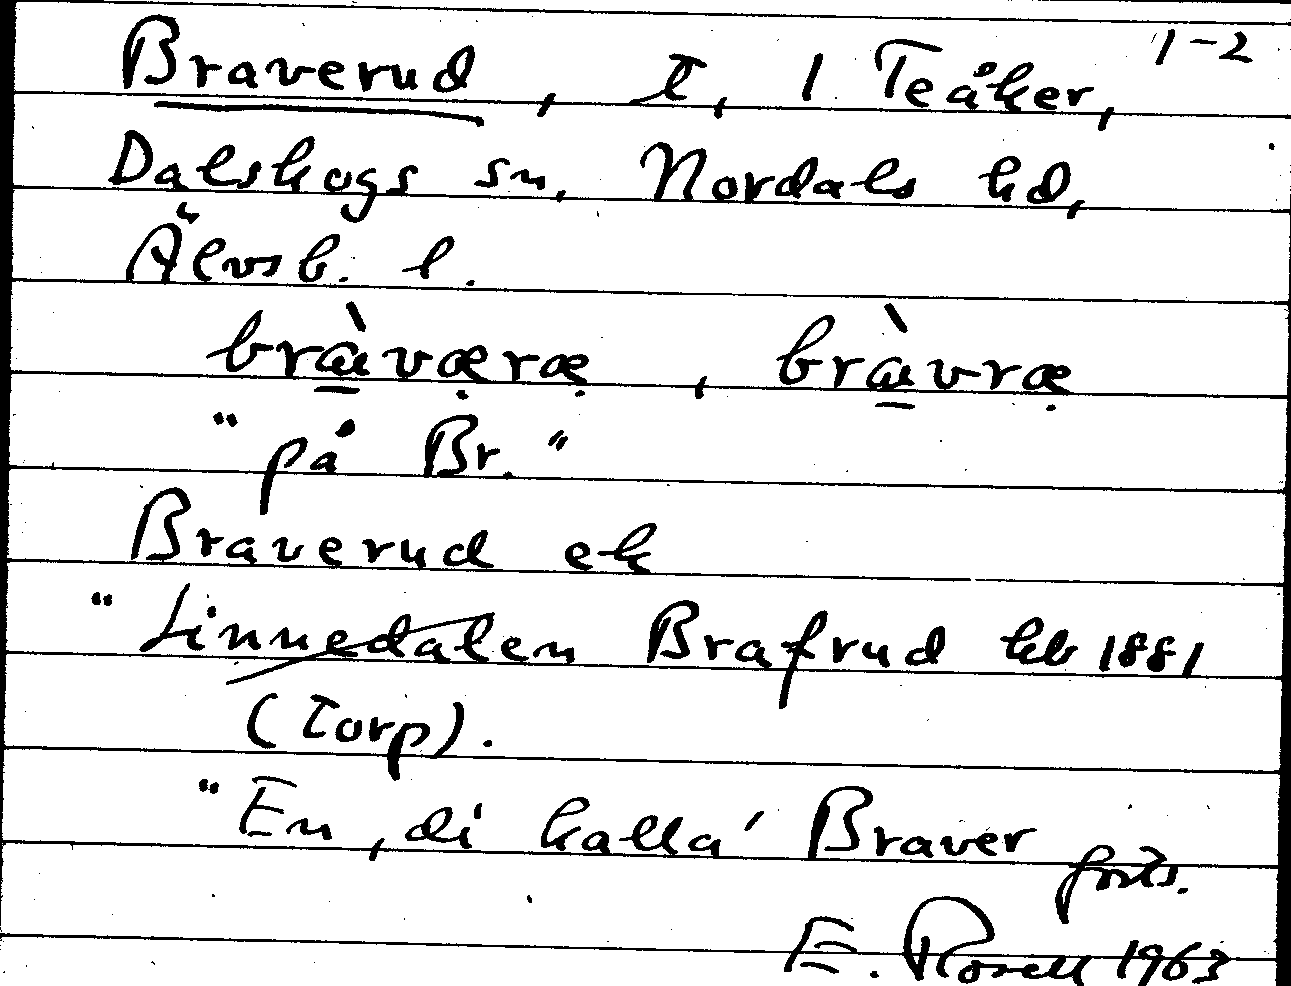 1-2
Braverud, t, 1 Teåker,
Dalskogs sn, Nordals hd,
Älvsb. l.
bràværæ, bràvræ
"på Br."
Braverud ek
"Linnedalen Brafrud kb 1881
(torp).
"En, di kalla' Braver
forts.
E. Rosell 1963